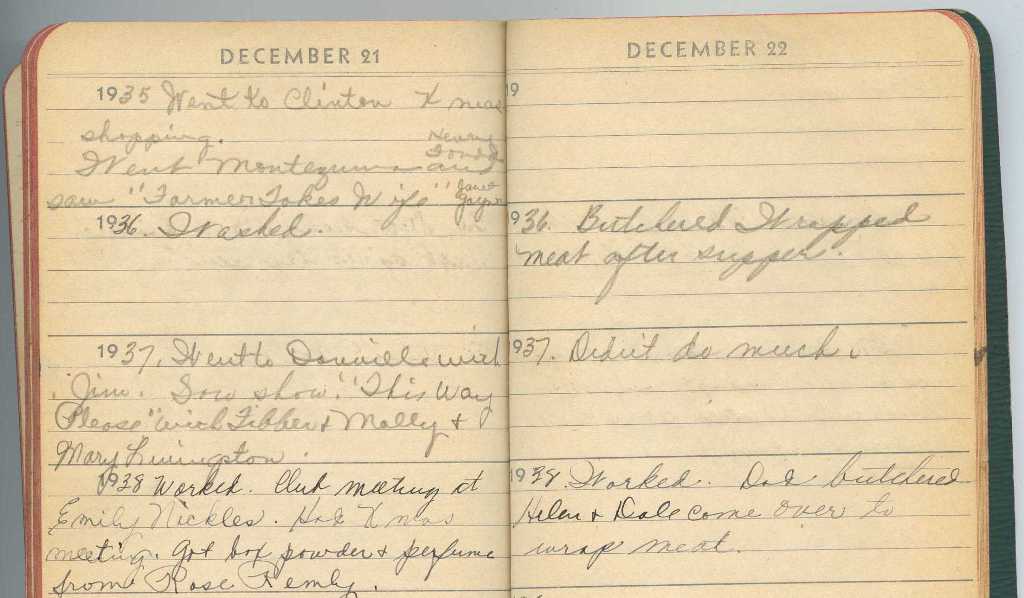 DECEMBER 21
1935 Went to Clinton Xmas
shopping.
Went Montezuma and Henry Fonda
saw "Farmer Takes Wife" Janet Gaynor
1936. Washed.
1937. Went to Danville with
Jim. Saw show. "This Way
Please" with Fibber & Molly &
Mary Livingston.
1938 Worked. Club meeting at
Emily Nickles. Had Xmas
meeting. Got box powder & perfume
from Rose Remly.
DECEMBER 22
19
1936. Butchered Wrapped
meat after supper.
1937. Didn't do much.
1938 Worked. Dad butchered
Helen & Dale come over to
wrap meat.